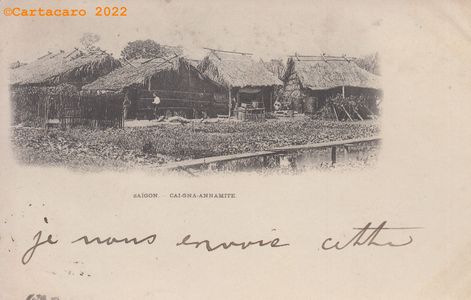 ©Cartacaro 2022
SAÏGON. - CAI-GNA-ANNAMITE
je nous envoie cette